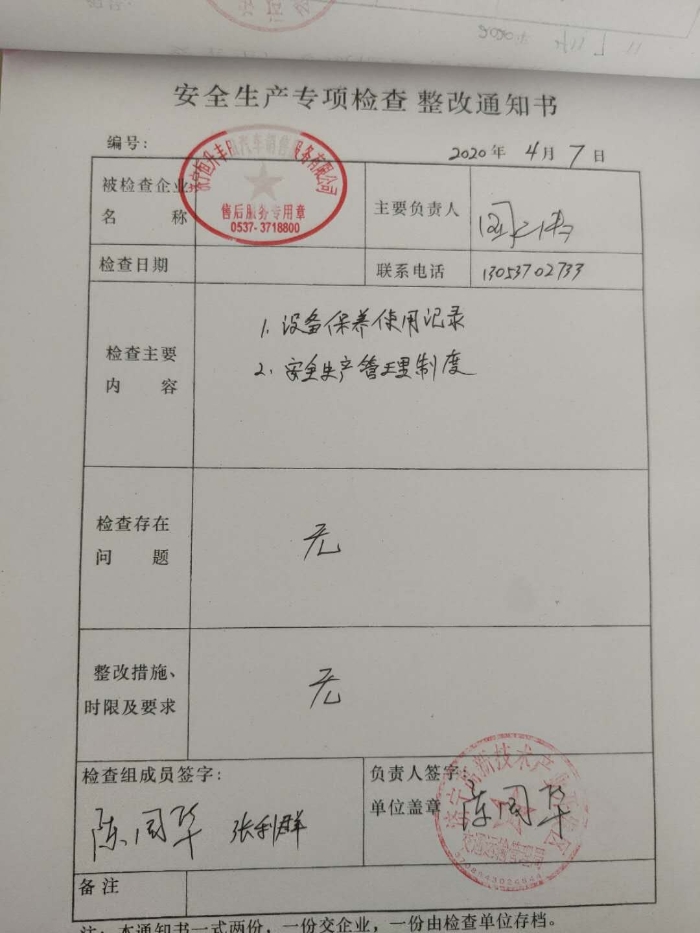 安全生产专项检查 整改通知书
编号:
2020年 4月 7日
被检查企业
名 称
汽车销售服务有限公司
售后服务专用章
0537-3718800
主要负责人
检查日期
联系电话
13053702733
检查主要
内 容
1. 设备保养使用记录
2. 安全生产管理制度
检查存在
问 题
无
整改措施、
时限及要求
无
检查组成员签字:
陈国华 张利群
负责人签字:
单位盖章
陈国华
备注
注: 本通知书一式两份，一份交企业，一份由检查单位存档。